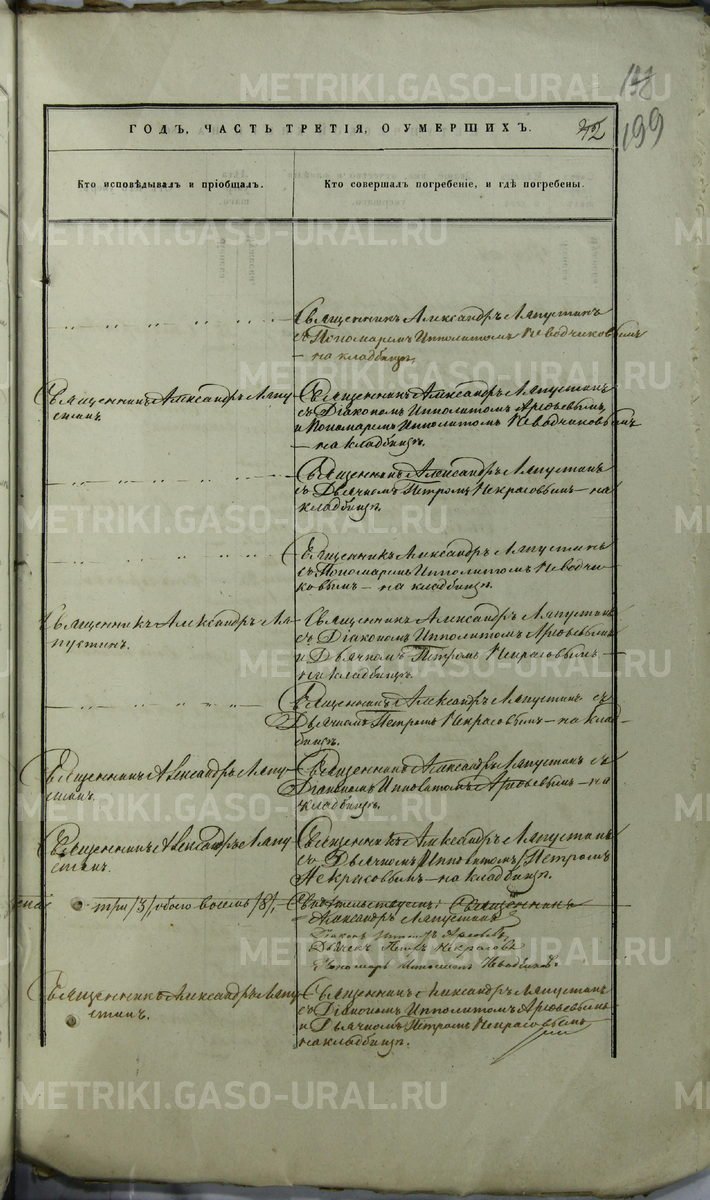 198
199
ГОДЪ, ЧАСТЬ ТРЕТІЯ, О УМЕРШИХЪ.
42
Кто исповѣдывалъ и пріобщалъ.
Кто совершалъ погребеніе, и гдѣ погребены.
Священникъ Александръ Ляпустинъ
съ Пономаремъ Ипполитомъ Неводчиковымъ
— на кладбищѣ.
Священникъ Александръ Ляпу-
стинъ.
Священникъ Александръ Ляпустинъ
съ Діакономъ Ипполитомъ Арефьевымъ
и Пономаремъ Ипполитомъ Неводчиковымъ
— на кладбищѣ.
Священникъ Александръ Ляпустинъ
съ Дьячкомъ Петромъ Некрасовымъ — на
кладбищѣ.
Священникъ Александръ Ляпустинъ
съ Пономаремъ Ипполитомъ Неводчи-
ковымъ — на кладбищѣ.
Священникъ Александръ Ля-
пустинъ.
Священникъ Александръ Ляпустинъ
съ Діакономъ Ипполитомъ Арефьевымъ
и Дьячкомъ Петромъ Некрасовымъ —
на кладбищѣ.
Священникъ Александръ Ляпустинъ съ
Дьячкомъ Петромъ Некрасовымъ — на клад-
бищѣ.
Священникъ Александръ Ляпу-
стинъ.
Священникъ Александръ Ляпустинъ съ
Діакономъ Ипполитомъ Арефьевымъ — на
кладбищѣ.
Священникъ Александръ Ляпу-
стинъ.
Священникъ Александръ Ляпустинъ
съ Дьячкомъ Петромъ
Некрасовымъ — на кладбищѣ.
три /3/, обоего восемь /8/,
Свидѣтельствуемъ: Священникъ
Александръ Ляпустинъ
Діаконъ Арефьевъ
Дьячекъ Петръ Некрасовъ
Пономарь Ипполитъ Неводчиковъ.
Священникъ Александръ Ляпу-
стинъ.
Священникъ Александръ Ляпустинъ
съ Діакономъ Ипполитомъ Арефьевымъ
и Дьячкомъ Петромъ Некрасовымъ
на кладбищѣ.
METRIKI.GASO-URAL.RU